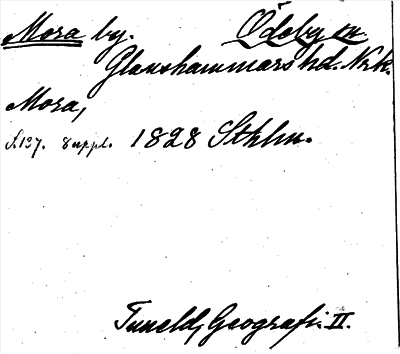 Mora by. Ödeby sn.
Glanshammars hd. Nrk.
Mora,
S. 137. Suppl. 1828 Sthlm.
Tuneld, Geografi. II.